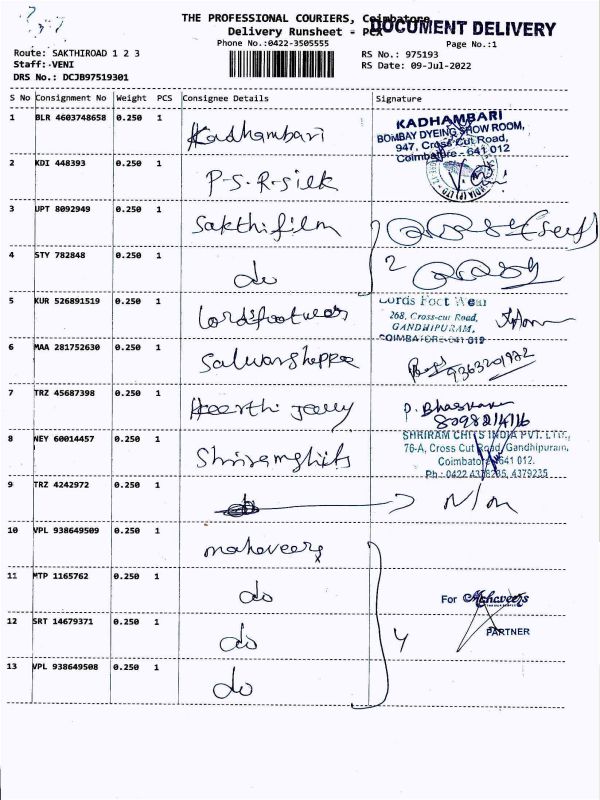 THE PROFESSIONAL COURIERS, Coimbatore
DOCUMENT DELIVERY
Delivery Runsheet - PCX
Phone No.:0422-3505555
Page No.:1
Route: SAKTHIROAD 1 2 3
RS No.: 975193
Staff: VENI
RS Date: 09-Jul-2022
DRS No.: DCJB97519301
S No Consignment No Weight PCS Consignee Details Signature
1 BLR 4603748658 0.250 1 Kadhambari
KADHAMBARI
BOMBAY DYEING SHOW ROOM,
947, Cross Cut Road,
Coimbatore - 641 012
2 KDI 448393 0.250 1 P-S-R-silk
3 UPT 8092949 0.250 1 Sakthifilm
4 STY 782848 0.250 1 do
2
5 KUR 526891519 0.250 1 Lordsfootwear
Lords Foot Wear
268, Cross-cut Road,
GANDHIPURAM,
COIMBATORE-641 012
6 MAA 281752630 0.250 1
7 TRZ 45687398 0.250 1
P. Bhaskaran
8 NEY 60014457 0.250 1
SHRIRAM CHITS INDIA PVT. LTD.,
76-A, Cross Cut Road, Gandhipuram,
Coimbatore-641 012.
Ph : 0422 4376235, 4379235
9 TRZ 4242972 0.250 1 do
10 VPL 938649509 0.250 1 mahaveers
11 MTP 1165762 0.250 1 do
For Mahaveers
12 SRT 14679371 0.250 1 do
4
PARTNER
13 VPL 938649508 0.250 1 do